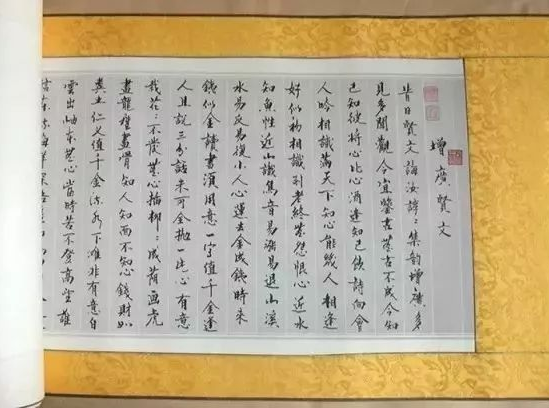 增廣賢文
昔日賢文誨汝諄〻集韻增廣多
見多聞觀今宜鑒古無古不成今知
己知彼將心比心酒逢知己飲詩向會
人吟相識滿天下知心能幾人相逢
好似初相識到老終無怨恨心近水
知魚性近山識鳥音易漲易退山溪
水易反易復小人心運去金成鐵時來
鐵似金讀書須用意一字值千金逢
人且說三分話未可全拋一片心有意
栽花〻不發無心插柳〻成蔭畫虎
畫龍難畫骨知人知面不知心錢財如
糞土仁義值千金流水下灘非有意白
雲出岫本無心當時若不登高望誰